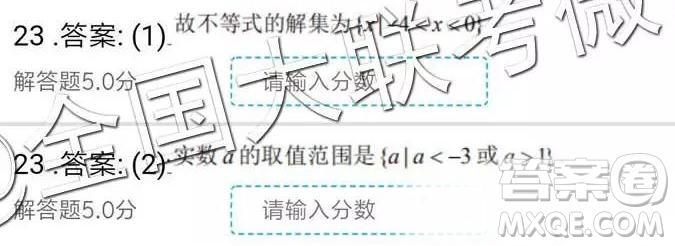 23 .答案: (1) 故不等式的解集为{x|-4<x<0}
解答题5.0分 请输入分数
全国大联考微
23 .答案: (2) 实数 a 的取值范围是{a|a<-3或a>1}
解答题5.0分 请输入分数
答案卷
MXQE.COM